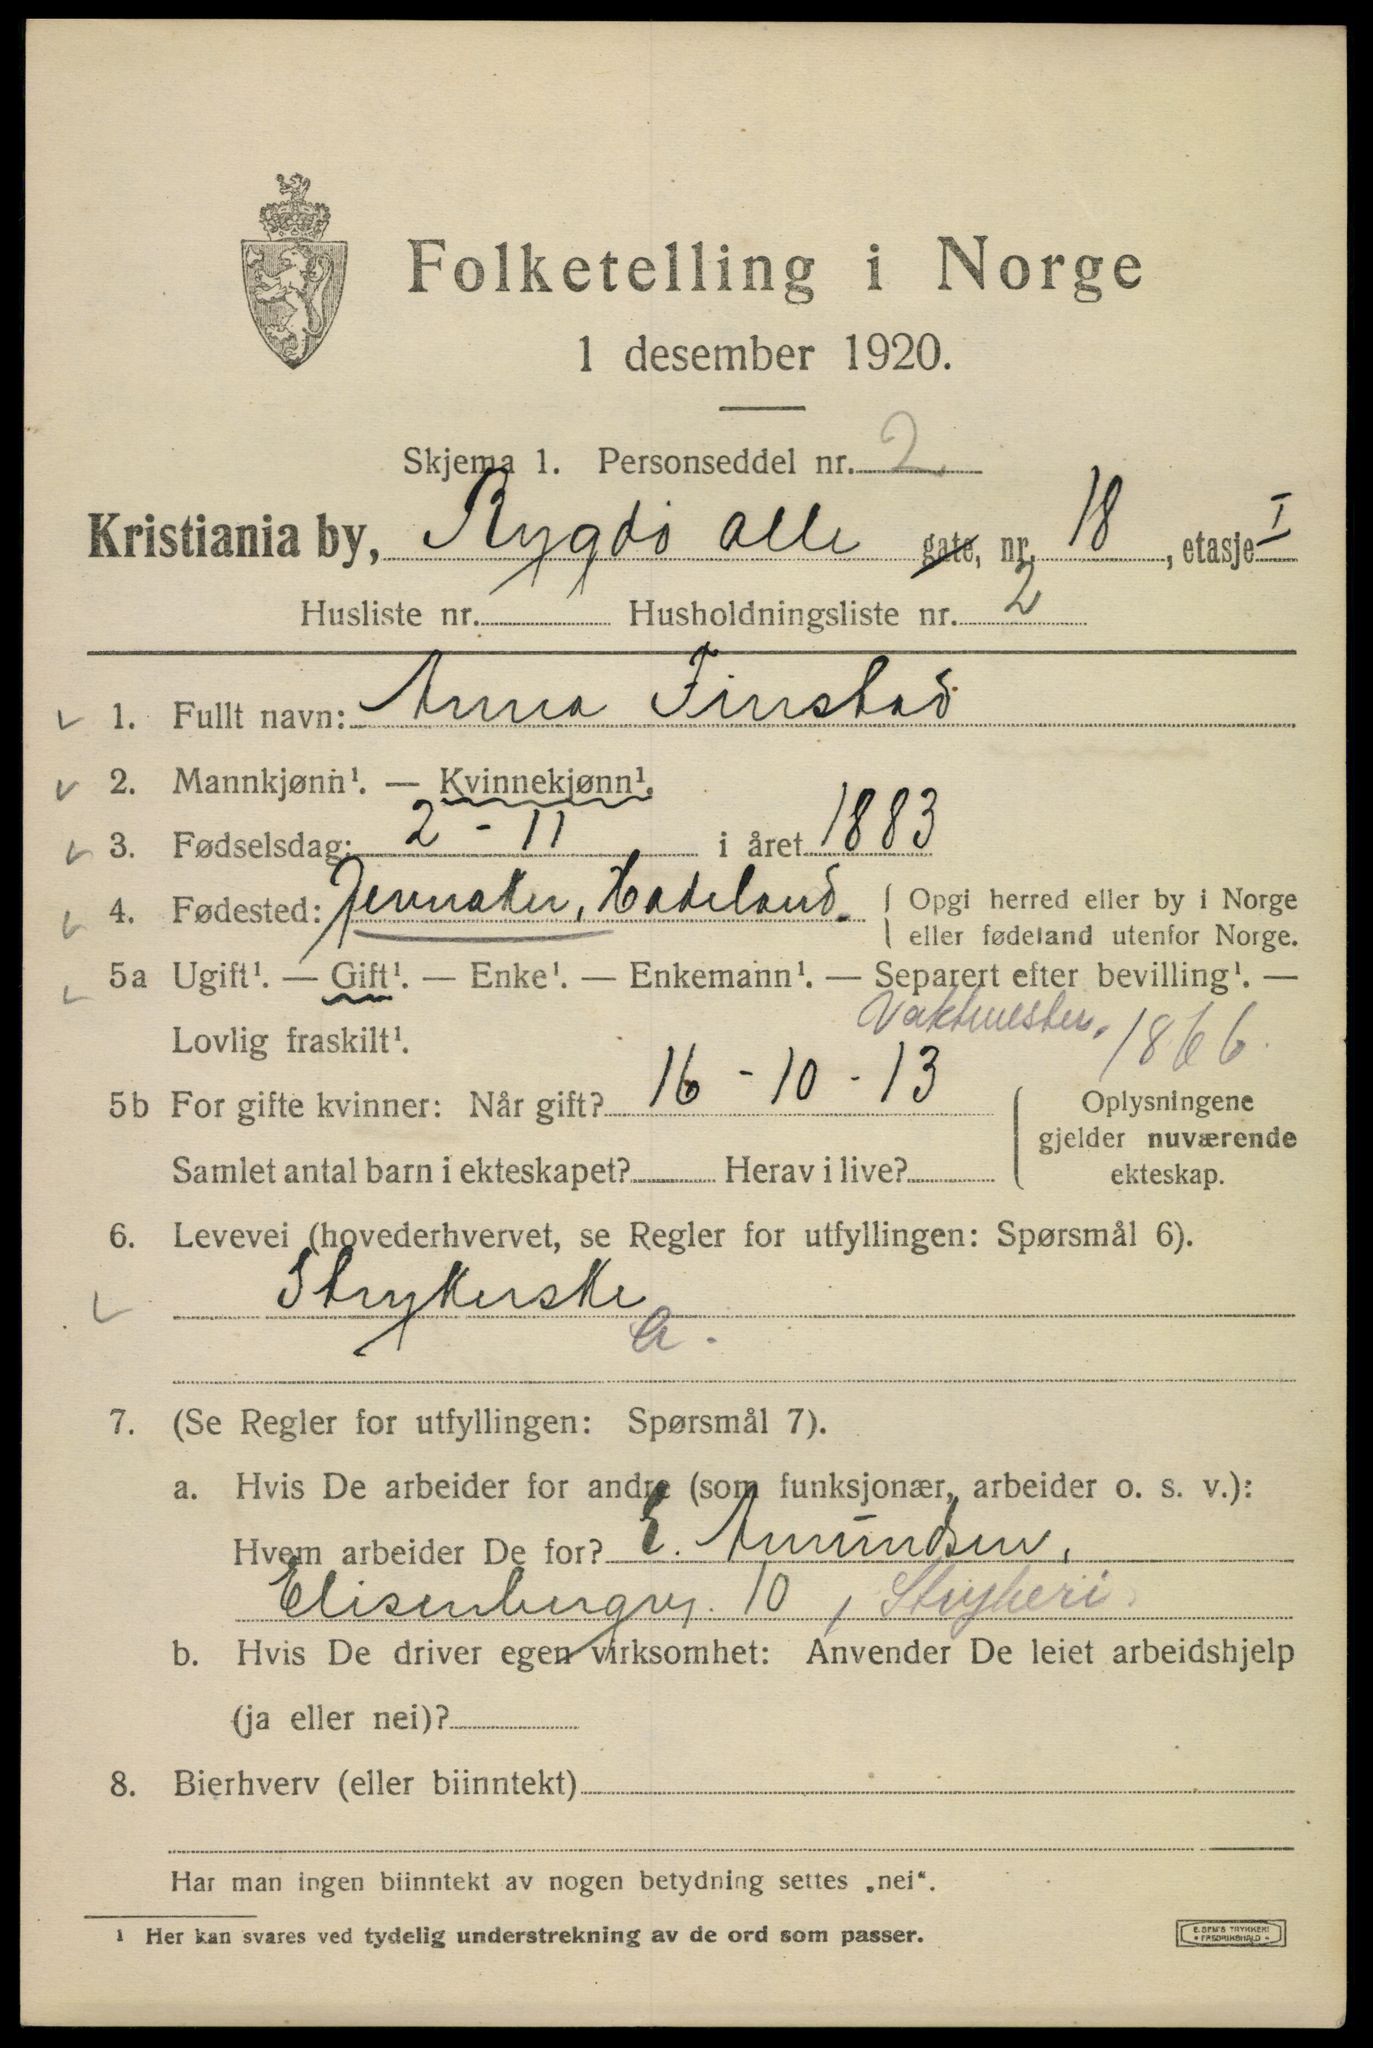 Folketelling i Norge
1 desember 1920.
Skjema 1. Personseddel nr. 2
Kristiania by, Bygdö alle gate, nr. 18, etasje I
Husliste nr. Husholdningsliste nr. 2
1. Fullt navn: Anna Finstad
2. Mannkjønn¹. — Kvinnekjønn¹.
3. Fødselsdag: 2 - 11 i året 1883
4. Fødested: Jevnaker, Hadeland. Opgi herred eller by i Norge
eller fødeland utenfor Norge.
5a Ugift¹. — Gift¹. — Enke¹. — Enkemann¹. — Separert efter bevilling¹. —
Lovlig fraskilt¹. Vaktmester, 1866.
5b For gifte kvinner: Når gift? 16 - 10 - 13 Oplysningene
gjelder nuværende
Samlet antal barn i ekteskapet? Herav i live? ekteskap.
6. Levevei (hovederhvervet, se Regler for utfyllingen: Spørsmål 6).
Strykerske
a.
7. (Se Regler for utfyllingen: Spørsmål 7).
a. Hvis De arbeider for andre (som funksjonær, arbeider o. s. v.):
Hvem arbeider De for? E. Amundsen,
Elisenbergvj. 10, Strykeri.
b. Hvis De driver egen virksomhet: Anvender De leiet arbeidshjelp
(ja eller nei)?
8. Bierhverv (eller biinntekt)
Har man ingen biinntekt av nogen betydning settes „nei“.
¹ Her kan svares ved tydelig understrekning av de ord som passer.
E. SEM'S TRYKKERI
FREDRIKSHALD